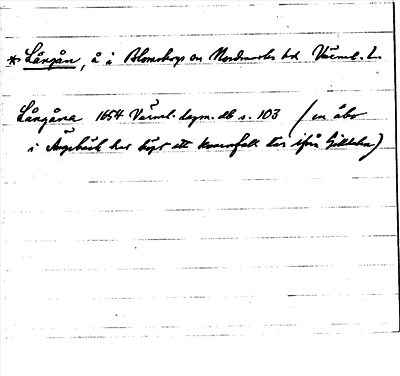 * Långån, å i Blomskogs sn Nordmarks hd Värml. l.
Långåna 1654 Värml. lagm. db s. 103 (en åbo
i Ängebäck har köpt ett kvarnfall där ifrån)